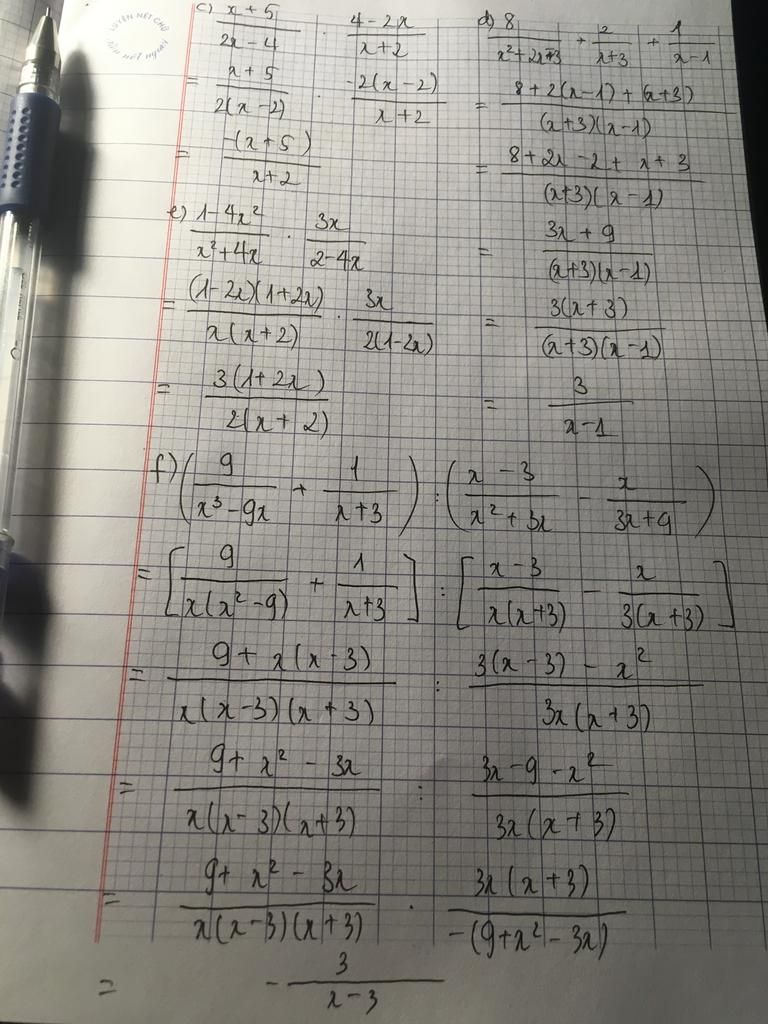 LUYỆN NÉT CHỮ
c) (x + 5)/(2x - 4) · (4 - 2x)/(x + 2)
= (x + 5)/(2(x - 2)) · (-2(x - 2))/(x + 2)
= (-(x + 5))/(x + 2)
e) (1 - 4x²)/(x² + 4x) · (3x)/(2 - 4x)
= ((1 - 2x)(1 + 2x))/(x(x + 2)) · (3x)/(2(1 - 2x))
= (3(1 + 2x))/(2(x + 2))
d) 8/(x² + 2x + 3) + 2/(x + 3) + 1/(x - 1)
= (8 + 2(x - 1) + (x + 3))/((x + 3)(x - 1))
= (8 + 2x - 2 + x + 3)/((x + 3)(x - 1))
= (3x + 9)/((x + 3)(x - 1))
= (3(x + 3))/((x + 3)(x - 1))
= 3/(x - 1)
f) (9/(x³ - 9x) + 1/(x + 3)) : ((x - 3)/(x² + 3x) - x/(3x + 9))
= [9/(x(x² - 9)) + 1/(x + 3)] : [(x - 3)/(x(x + 3)) - x/(3(x + 3))]
= (9 + x(x - 3))/(x(x - 3)(x + 3)) : (3(x - 3) - x²)/(3x(x + 3))
= (9 + x² - 3x)/(x(x - 3)(x + 3)) : (3x - 9 - x²)/(3x(x + 3))
= (9 + x² - 3x)/(x(x - 3)(x + 3)) · (3x(x + 3))/(-(9 + x² - 3x))
= - 3/(x - 3)